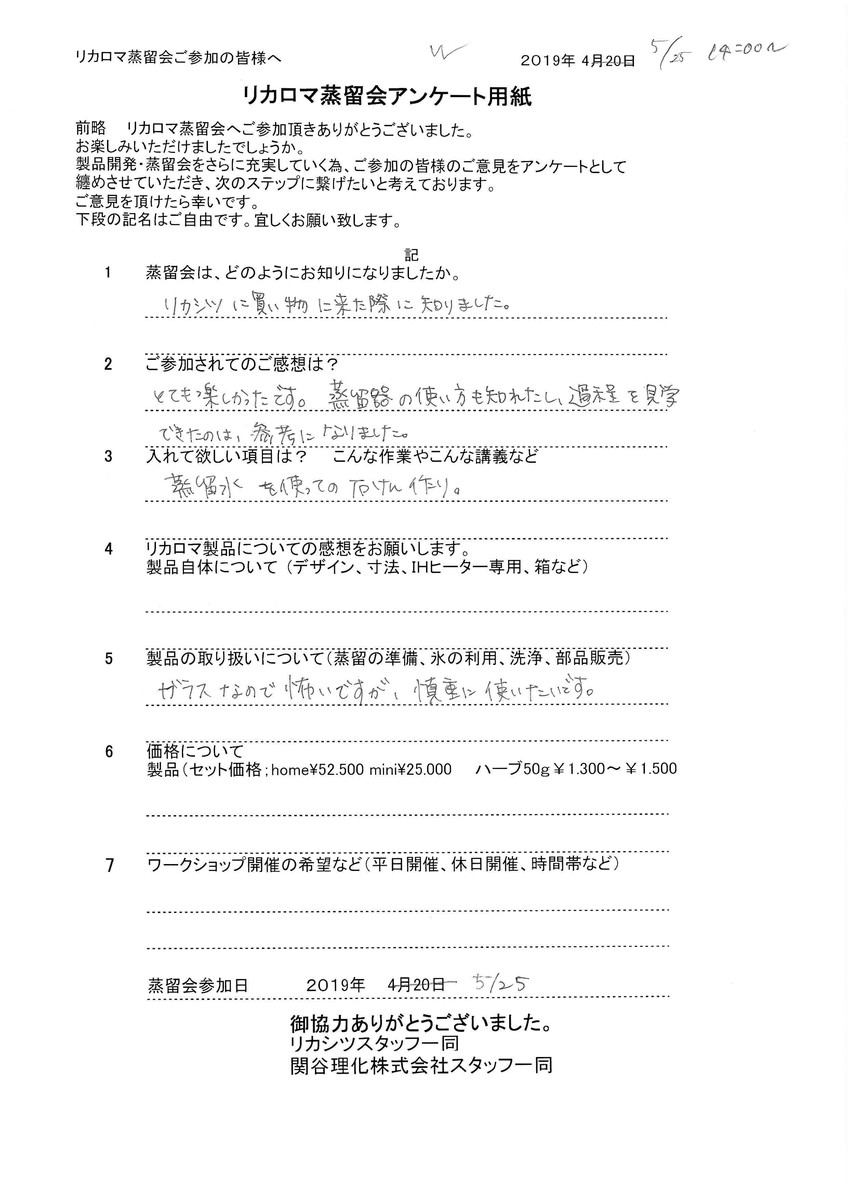 リカロマ蒸留会ご参加の皆様へ
2019年 4月20日 5/25 14:00〜
リカロマ蒸留会アンケート用紙
前略 リカロマ蒸留会へご参加頂きありがとうございました。
お楽しみいただけましたでしょうか。
製品開発・蒸留会をさらに充実していく為、ご参加の皆様のご意見をアンケートとして
纏めさせていただき、次のステップに繋げたいと考えております。
ご意見を頂けたら幸いです。
下段の記名はご自由です。宜しくお願い致します。
記
1 蒸留会は、どのようにお知りになりましたか。
リカシツに買い物に来た際に知りました。
2 ご参加されてのご感想は？
とても楽しかったです。蒸留器の使い方も知れたし、過程を見学
できたのは、参考になりました。
3 入れて欲しい項目は？ こんな作業やこんな講義など
蒸留水を使っての石けん作り。
4 リカロマ製品についての感想をお願いします。
製品自体について（デザイン、寸法、IHヒーター専用、箱など）
5 製品の取り扱いについて（蒸留の準備、氷の利用、洗浄、部品販売）
ガラスなので怖いですが、慎重に使いたいです。
6 価格について
製品（セット価格；home¥52.500 mini¥25.000 ハーブ50g￥1.300～￥1.500
7 ワークショップ開催の希望など（平日開催、休日開催、時間帯など）
蒸留会参加日 2019年 4月20日 5/25
御協力ありがとうございました。
リカシツスタッフ一同
関谷理化株式会社スタッフ一同